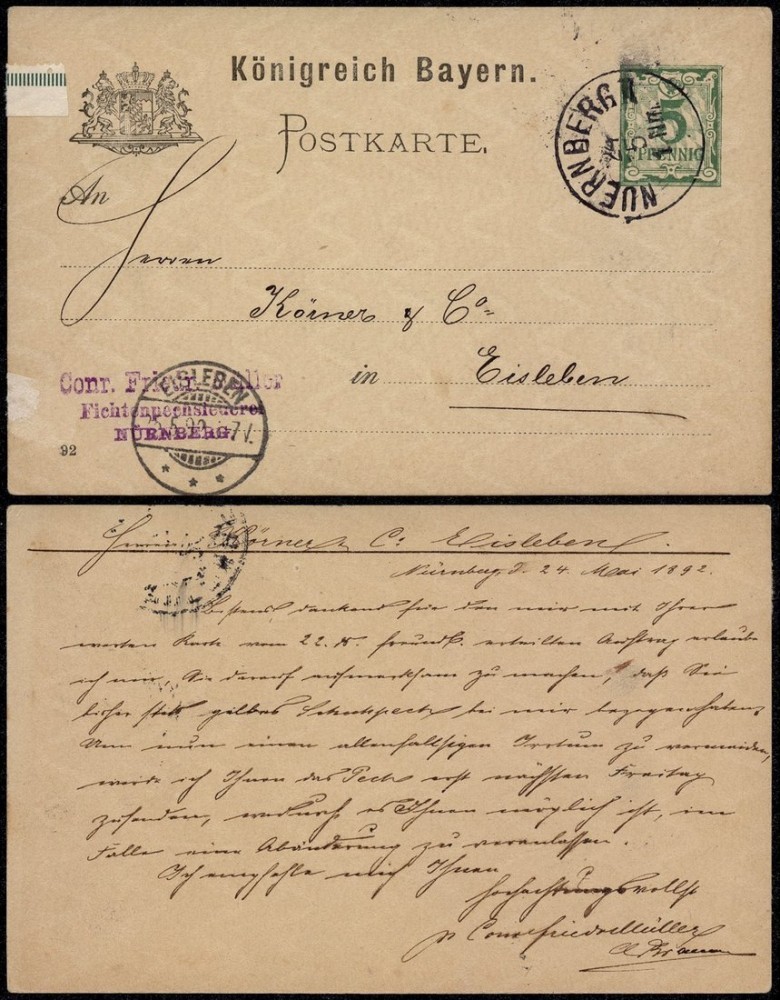 Königreich Bayern.
POSTKARTE.
5
PFENNIG
NUERNBERG II
24 5
1 Nm.
An
Herren
Körner & Co
in Eisleben
Conr. Friedr. Müller
Fichtenpechsiederei
NÜRNBERG.
EISLEBEN
25.5.92 7-V.
92
Herren Körner & Co Eisleben.
Nürnberg, d. 24. Mai 1892.
Bestens dankend für den mir mit Ihrer
werten Karte vom 22. ds. freundl. erteilten Auftrag erlaube
ich mir, Sie darauf aufmerksam zu machen, daß Sie
bisher stets gelbes bei mir bezogen haben,
Um nun einen allenfallsigen Irrtum zu vermeiden,
werde ich Ihnen das Pech erst nächsten Freitag
zusenden, wodurch es Ihnen möglich ist, im
Falle eine Abänderung zu veranlassen.
Ich empfehle mich Ihnen
hochachtungsvollst
pr Conr. Friedr. Müller